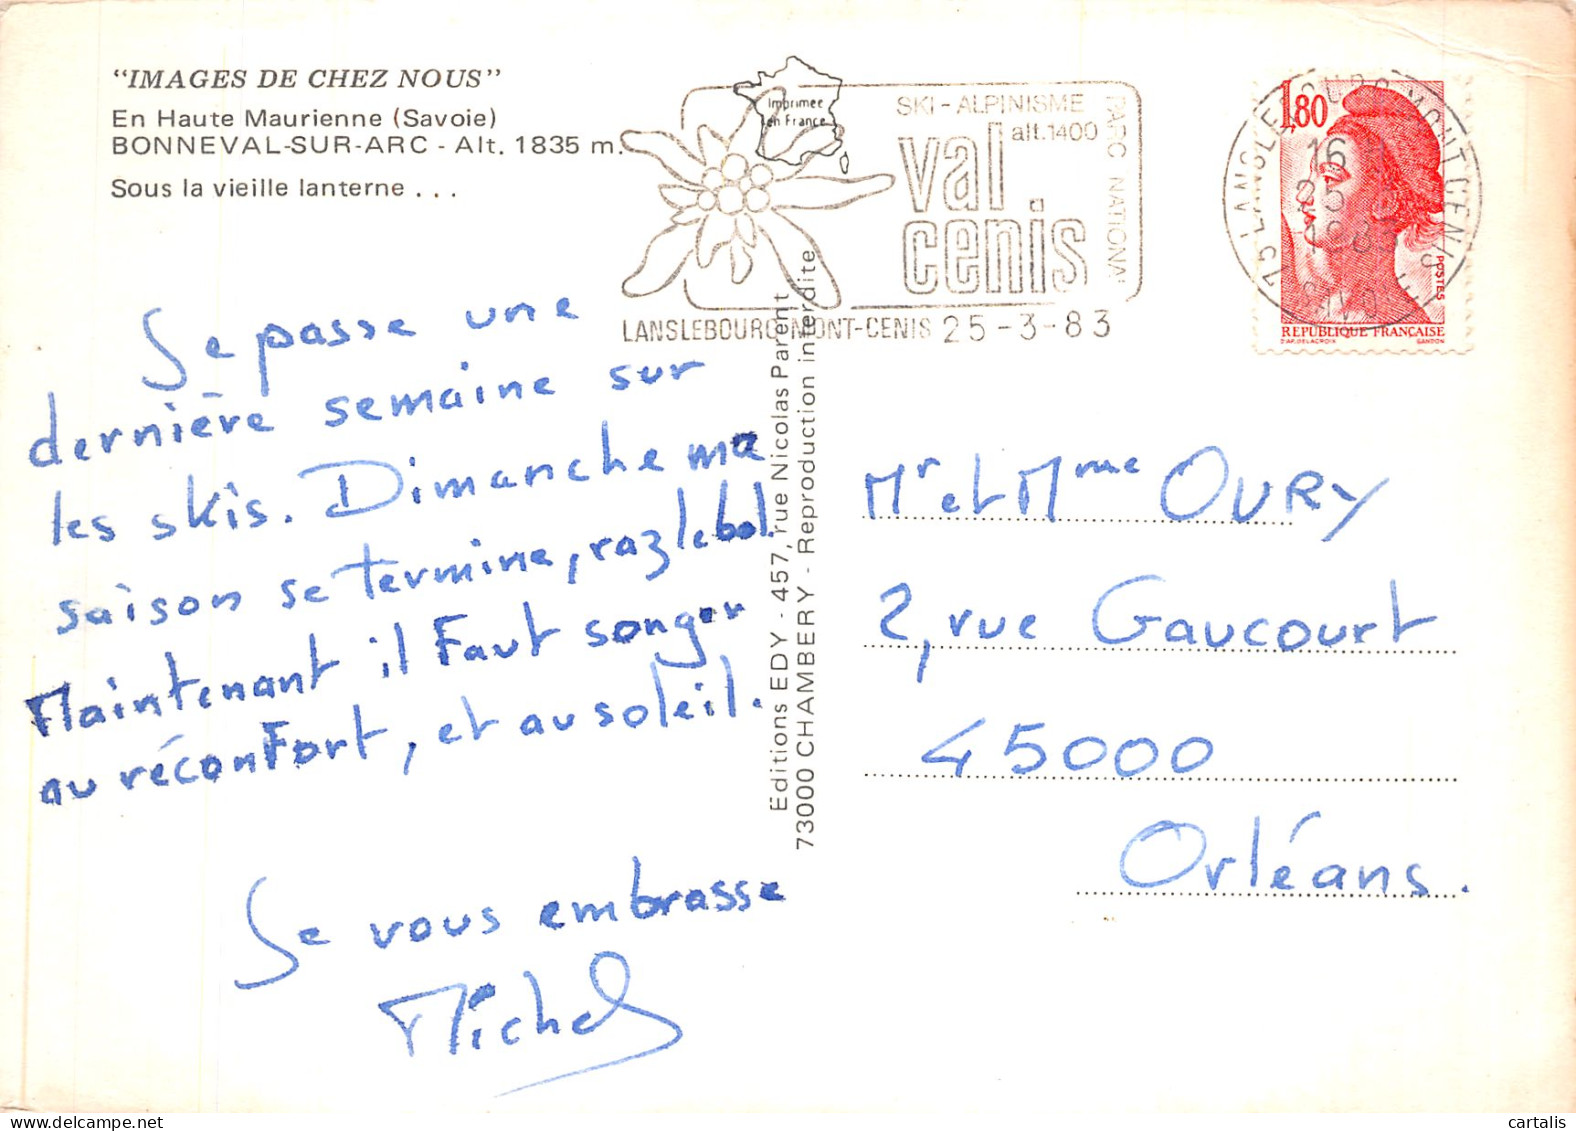 "IMAGES DE CHEZ NOUS"
En Haute Maurienne (Savoie)
BONNEVAL-SUR-ARC - Alt. 1835 m.
Sous la vieille lanterne . . .
Imprimée
en France
SKI - ALPINISME
alt.1400
val
cenis
PARC NATIONAL
LANSLEBOURG MONT-CENIS 25-3-83
73 LANSLEBOURG MONT CENIS
16 H
25
SAVOIE
1,80
POSTES
REPUBLIQUE FRANÇAISE
D'AP. DELACROIX
GANDON
Je passe une
dernière semaine sur
les skis. Dimanche ma
saison se termine, razlebol.
Maintenant il Faut songer
au réconFort, et au soleil.
Je vous embrasse
Michel
Editions EDY - 457, rue Nicolas Parent
73000 CHAMBERY - Reproduction interdite
Mr et Mme OURY
2, rue Gaucourt
45000
Orléans.
delcampe.net
cartalis